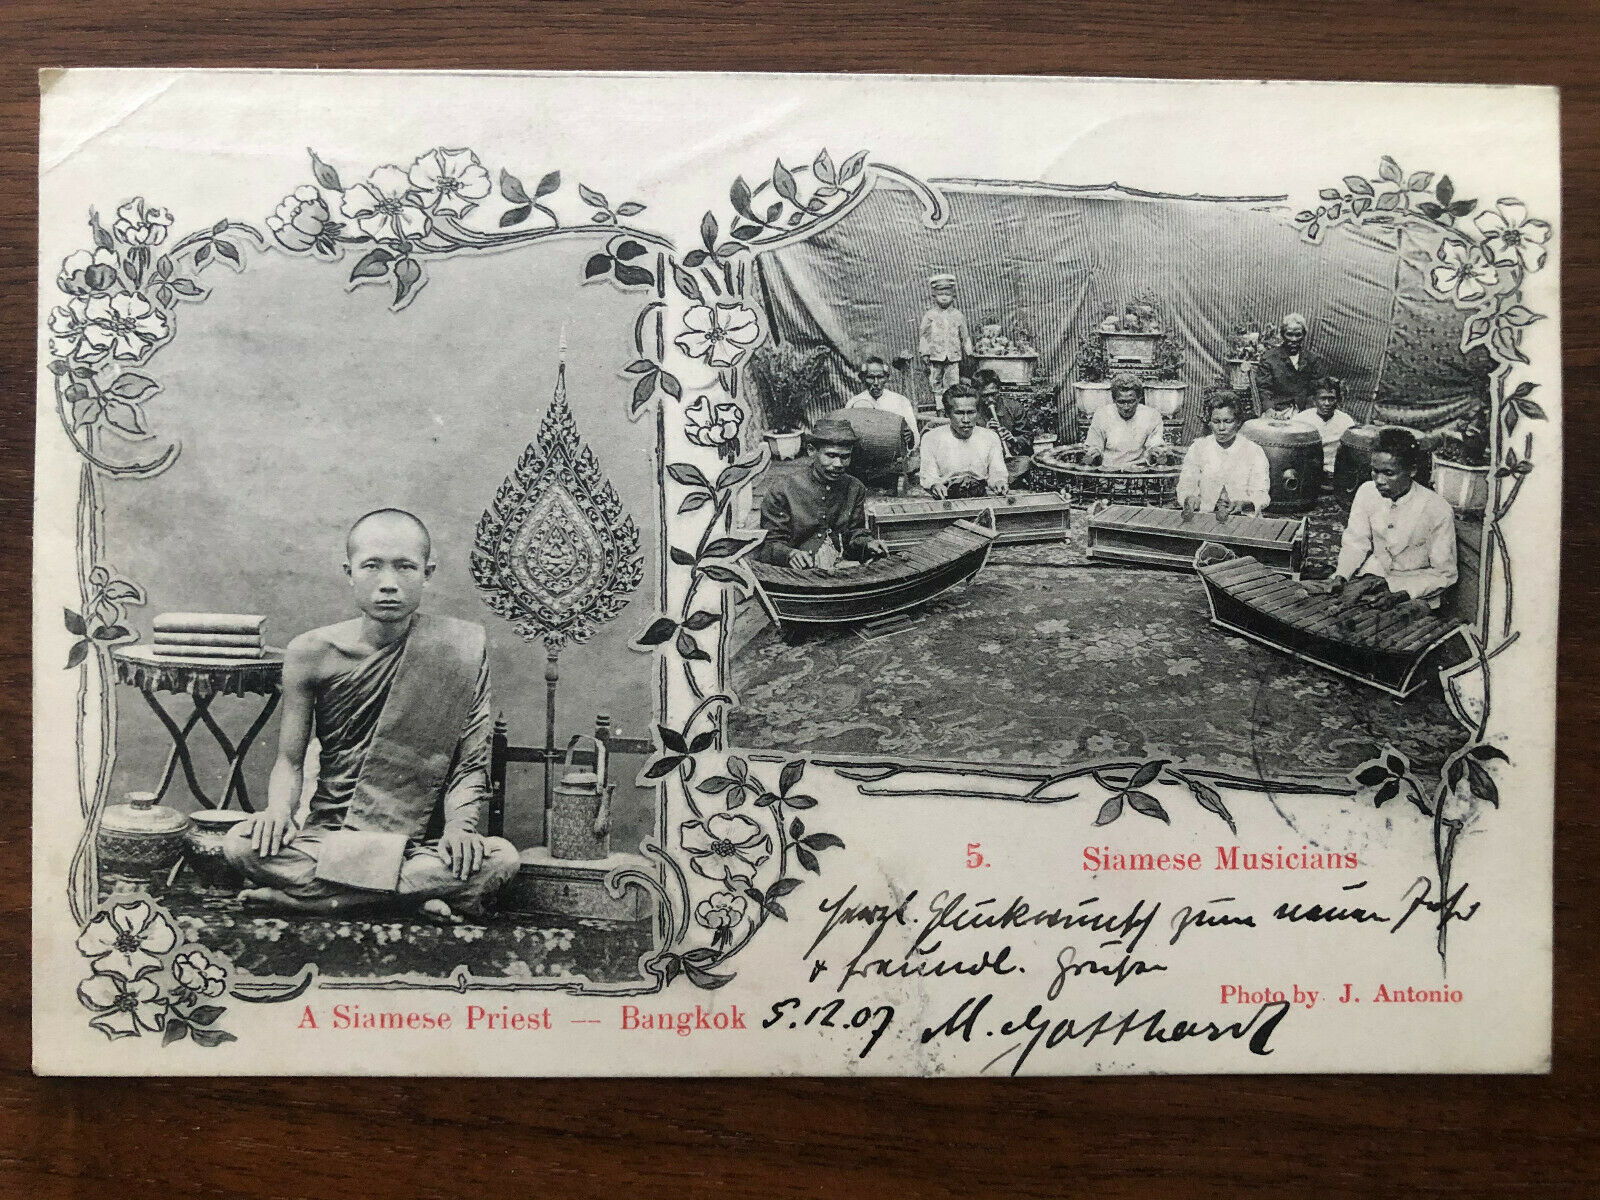 5. Siamese Musicians
Herzl. Glückwunsch zum neuen Jahr
+ freundl. Grüßen
Photo by J. Antonio
A Siamese Priest — Bangkok 5.12.07 M. Gotthardt